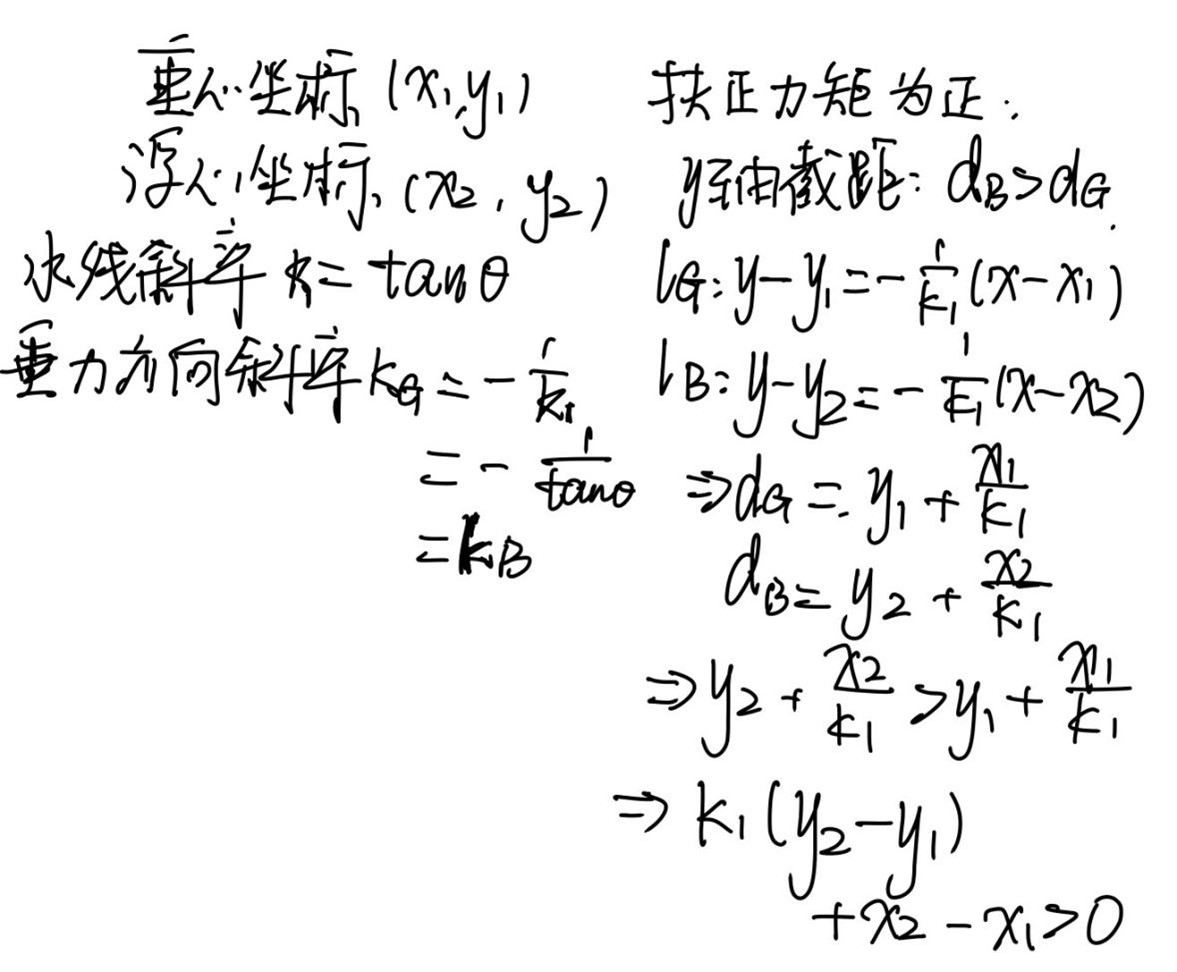 重心坐标 (x₁,y₁)
浮心坐标 (x₂, y₂)
水线斜率 k₁= tanθ
重力方向斜率 k_G = -1/k₁
= -1/tanθ
= k_B
扶正力矩为正:
y轴截距: d_B>d_G
l_G: y-y₁=-1/k₁(x-x₁)
l_B: y-y₂=-1/k₁(x-x₂)
⇒d_G = y₁+x₁/k₁
d_B= y₂+x₂/k₁
⇒y₂+x₂/k₁>y₁+x₁/k₁
⇒ k₁(y₂-y₁)
+x₂-x₁>0